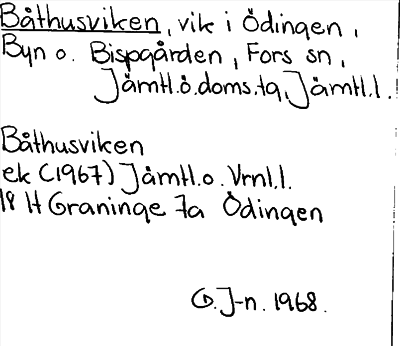 Båthusviken, vik i Ödingen,
Byn o. Bispgården, Fors sn,
Jämtl.ö.doms.tg, Jämtl.l.
Båthusviken
ek (1967) Jämtl.o. Vrnl.l.
18 H Graninge 7a Ödingen
G. J-n. 1968.